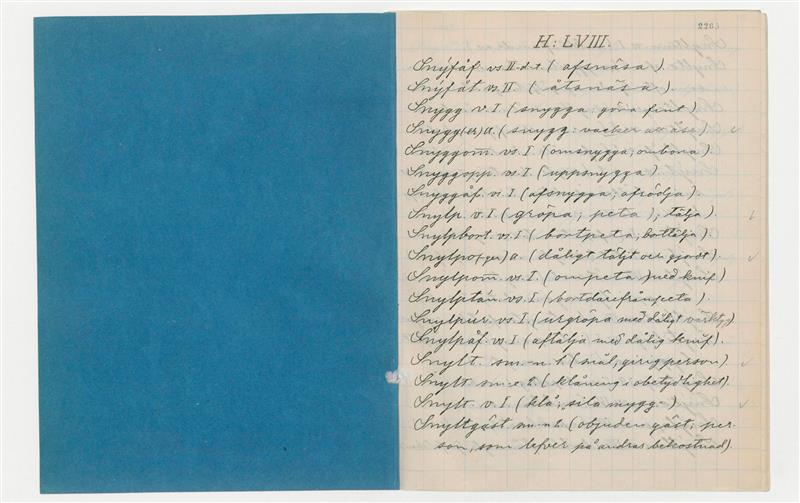 2265
H: LVIII.
Snýfåf. vs II. d. t. (afsnåsa).
Snýfåt. vs. II. (åtsnåsa).
Snygg v. I (snygga göra fint)
Snygg(er) a. (snygg: vacker att åse).
Snyggom̅. vs. I. (omsnygga; ombona).
Snyggopp. vs I. (uppsnygga).
Snyggåf. vs. I. (afsnygga; afrödja).
Snylp. v. I. (gröpa; peta); tälja).
Snylpbort. vs I. (bortpeta; borttälja).
Snylpo(gen) a. (dåligt täljt och gjordt).
Snylpom̅. vs. I. (ompeta) med knif)
Snylptán. vs. I. (bortdärefrånpeta).
Snylpúr. vs. I. (urgröpa med dåligt värktyg)
Snylpåf. vs I. (aftälja med dålig knif).
Snylt. sm. n. 1. (snål, girig person).
Snylt sm. 1. (klåneng i obetydlighet).
Snylt v. I (klå; sila mygg.)
Snyltgäst sm. n 1. (objuden gäst; per-
son, som lefver på andras bekostnad).